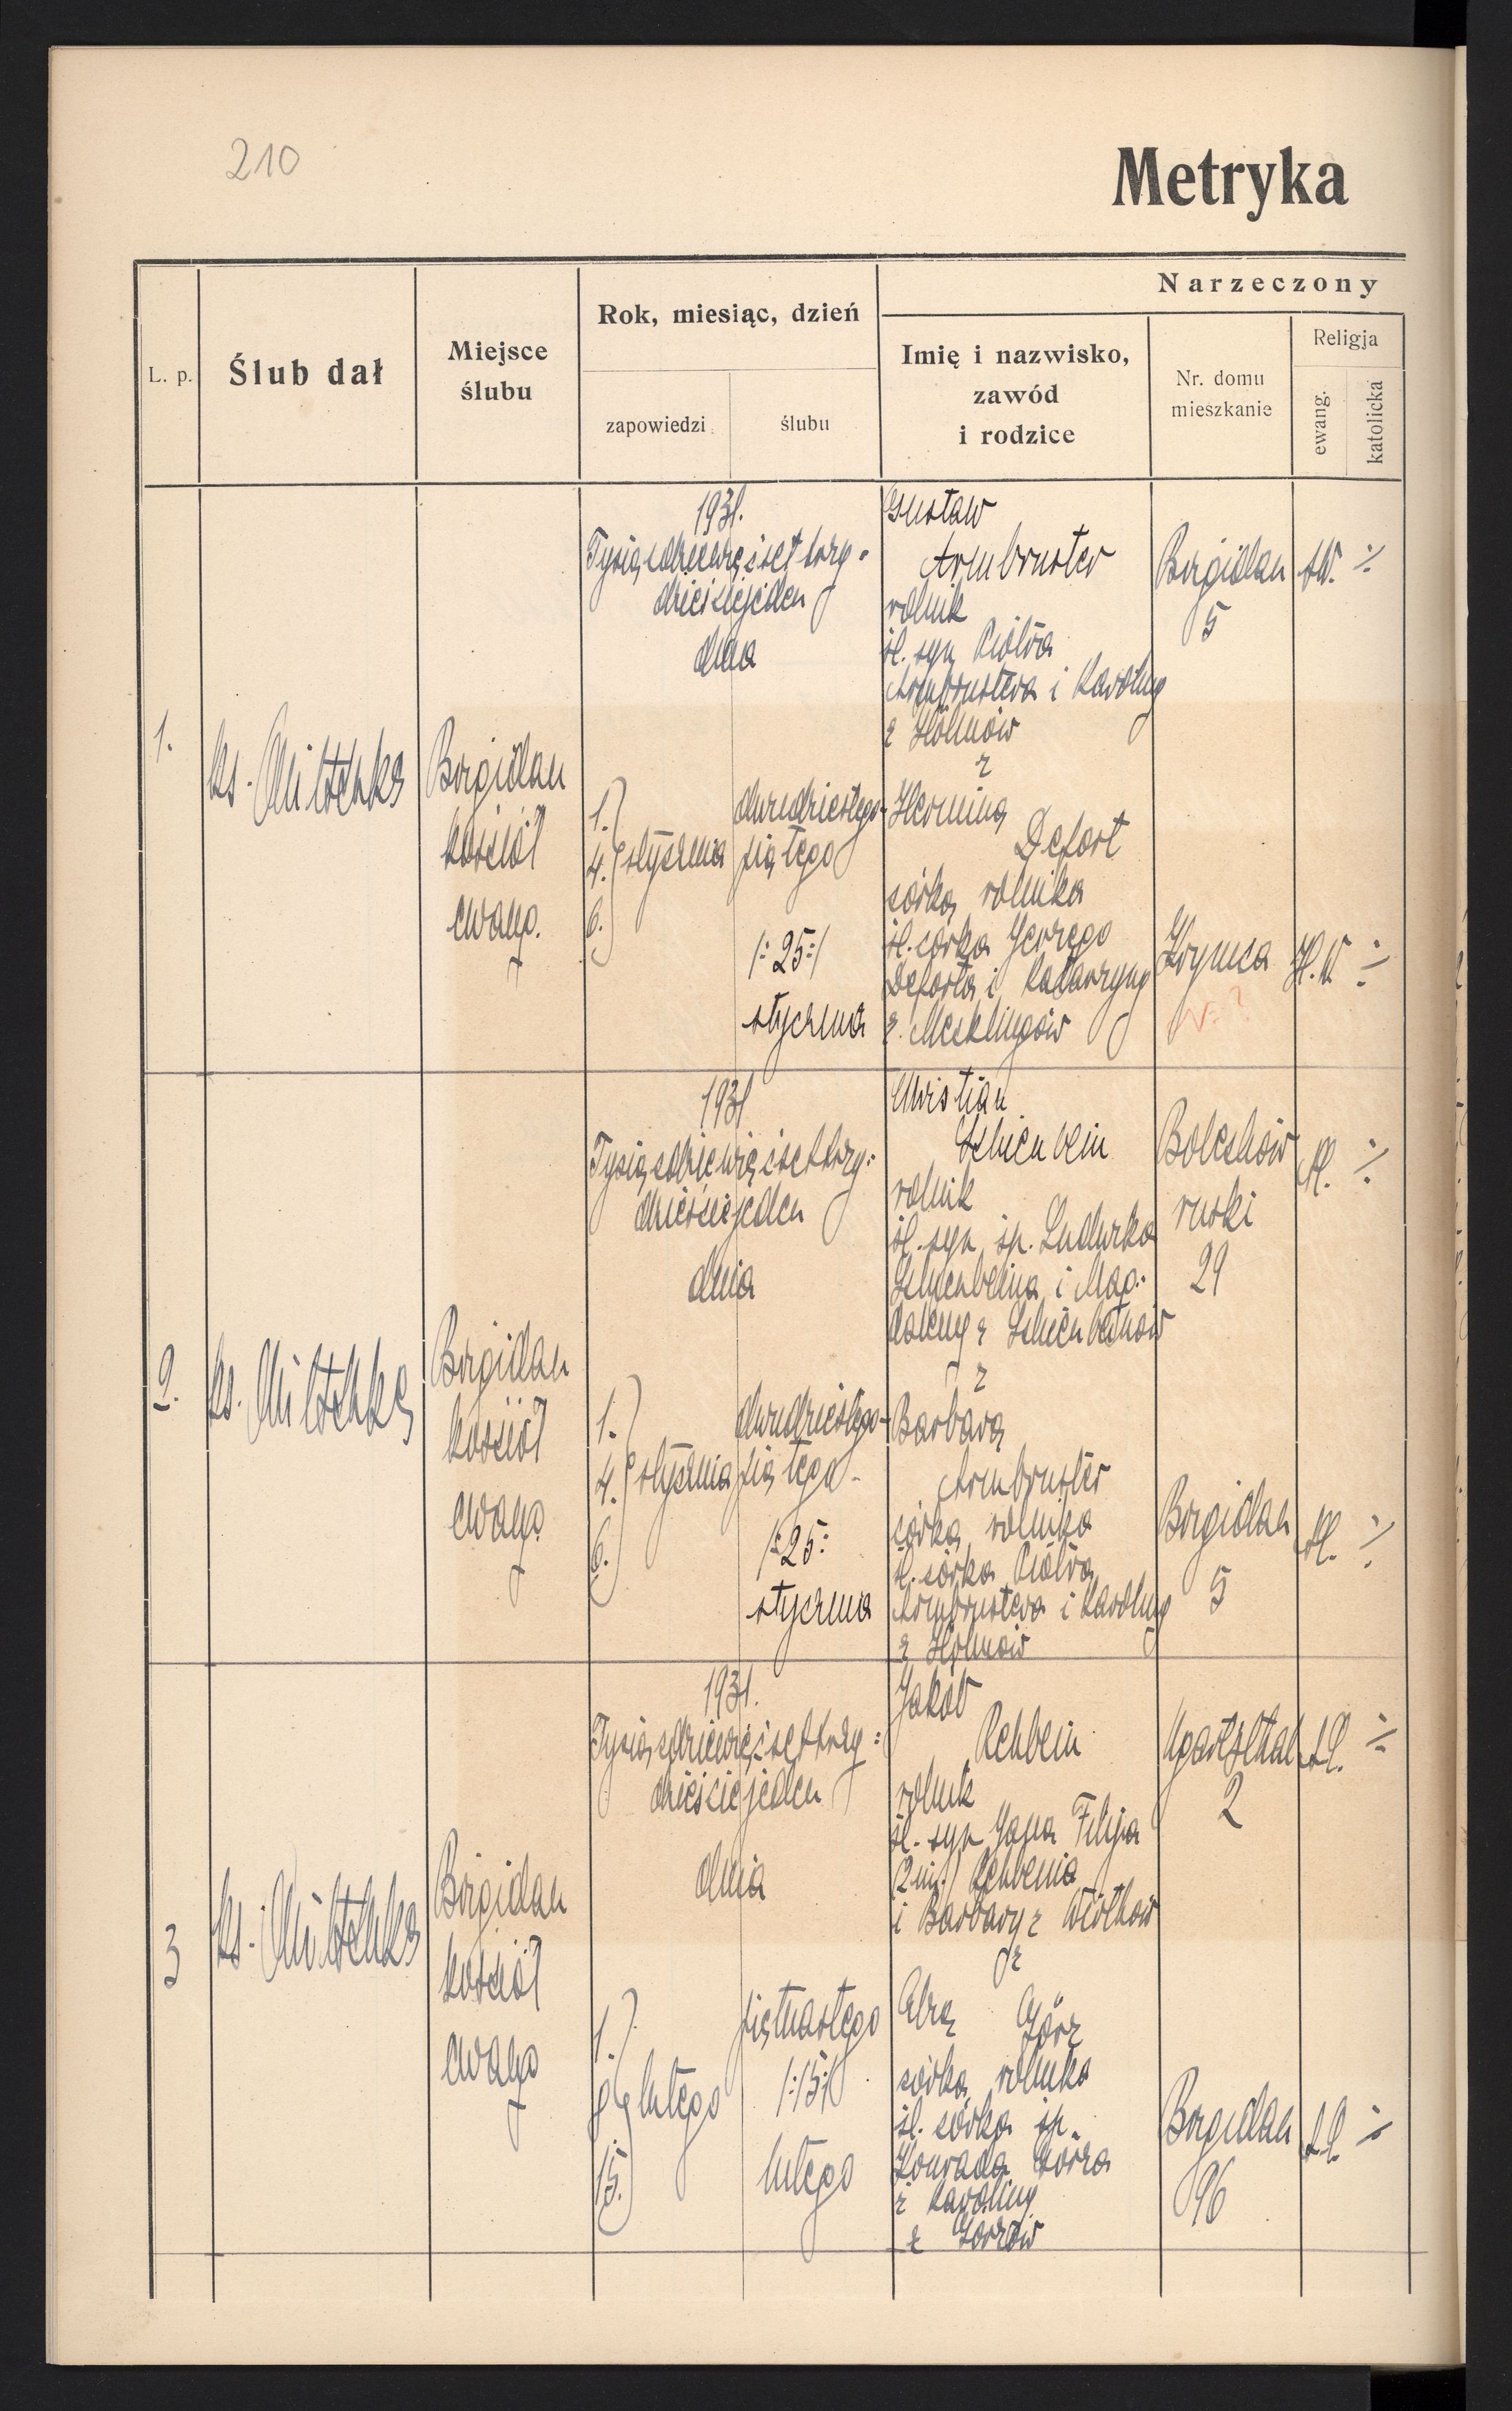 210
Metryka
L. p.
Ślub dał
Miejsce
ślubu
Rok, miesiąc, dzień
zapowiedzi
ślubu
Narzeczony
Imię i nazwisko,
zawód
i rodzice
Nr. domu
mieszkanie
Religja
ewang.
katolicka
1.
ks. Mitschke
Brigidau
kościół
ewang.
1931.
Tysiącdziewięćsettrzy-
dzieściejeden
dnia
1.
4. stycznia
6.
dwudziestego-
piątego
/:25:/
stycznia
Gustaw
Armbruster
rolnik
śl. syn Piotra
Armbrustera i Karoliny
z Höhnów
z
Herminą
Defort
córką rolnika
śl. córka Jerzego
Deforta i Katarzyny
z
Brigidau
5
Krynica
H.W.
2.
ks. Mitschke
Brigidau
kościół
ewang.
1931
Tysiącdziewięćsettrzy-
dzieściejeden
dnia
1.
4. stycznia
6.
dwudziestego-
piątego-
/:25:
stycznia
Christian
rolnik
śl. syn śp. Ludwika
i Mag-
daleny z
z
Barbarą
Armbruster
córką rolnika
śl. córka Piotra
Armbrustera i Karoliny
z Höhnów
Bolechów
ruski
29
Brigidau
5
3
ks. Mitschke
Brigidau
kościół
ewang
1931.
Tysiącdziewięćsettrzy-
dzieściejeden
dnia
1.
8 lutego
15.
piętnastego
/:15:/
lutego
Jakób
Rehbein
rolnik
śl. syn Jana Filipa
(2 im.) Rehbeina
i Barbary z
z
Elzą Görz
córką rolnika
śl. córka śp.
Konrada Görza
i Karoliny
z Görzów
Ugartsthal
2
Brigidau
96